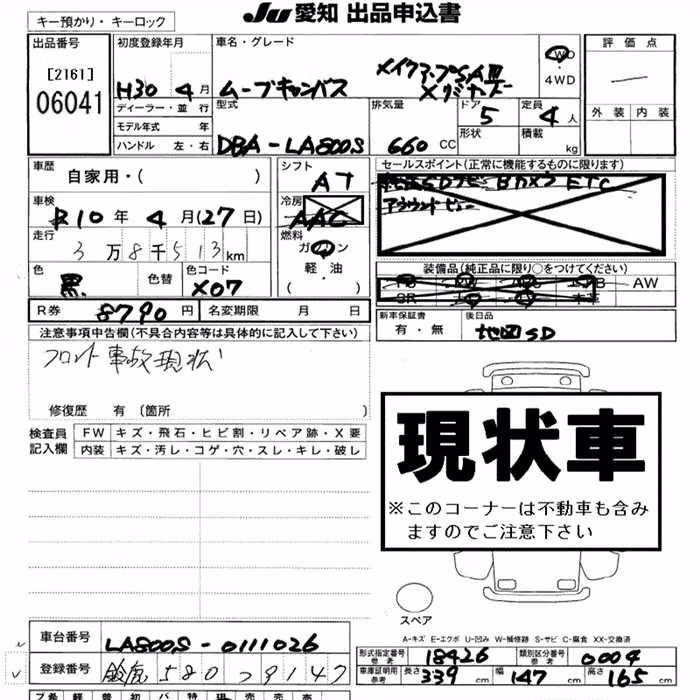 キー預かり・キーロック
JU 愛知 出品申込書
出品番号
初度登録年月
車名・グレード
評価点
[2161]
06041
H30年4月
ムーブキャンバス
メイクアップSAⅢ
2WD・4WD
ディーラー・並行
型式
排気量
ドア
定員
外装 内装
モデル年式 年
DBA-LA800S
660CC
5
4人
ハンドル 左・右
形状
積載 kg
車歴
自家用・( )
シフト
AT
セールスポイント(正常に機能するものに限ります)
SDナビ Bカメラ ETC
アラウンドビュー
車検
R10年4月(27日)
冷房
AAC
走行
3万8千513km
燃料
ガソリン
軽・油
色
黒
色替
色コード
X07
装備品(純正品に限り○をつけてください)
AW
SR
R券 8790円
名変期限 月 日
新車保証書
有・無
後日品
地図SD
注意事項申告欄(不具合内容等は具体的に記入して下さい)
フロント事故現状
修復歴 有 [箇所 ]
検査員記入欄
FW キズ・飛石・ヒビ割・リペア跡・X要
内装 キズ・汚レ・コゲ・穴・スレ・キレ・破レ
現状車
※このコーナーは不動車も含み
ますのでご注意下さい
スペア
A-キズ E-エクボ U-凹み W-補修跡 S-サビ C-腐食 XX-交換済
車台番号 LA800S-0111026
登録番号 鈴鹿 580 つ 9147
形式指定番号 参考 18426
類別区分番号 参考 0004
車庫証明用 参考
長さ 339cm
幅 147cm
高さ 165cm